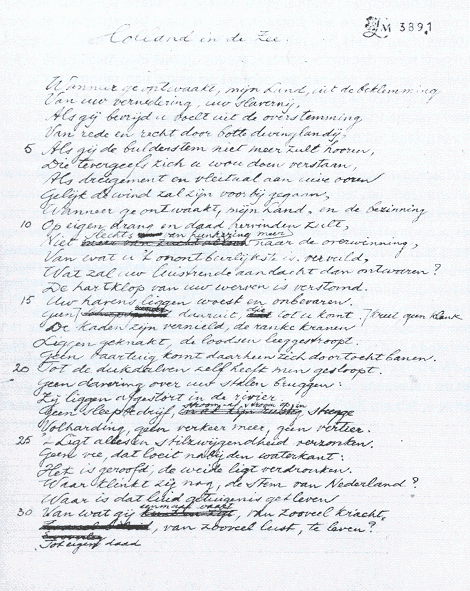 LM 3891
Holland in de Zee.
Wanneer ge ontwaakt, mijn Land, uit de beklemming
Van uw vernedering, uw slavernij,
Als gij bevrijd u voelt uit de overstemming
Van rede en recht door botte dwinglandij,
5 Als gij de buldenstem niet meer zult hooren,
Die tevergeefs zich u wou doen verstaan,
Als dreigement en vleitaal aan uwe ooren
Gelijk de wind zal zijn voorbij gegaan,
Wanneer ge ontwaakt, mijn Land, en de bezinning
10 Op eigen drang en daad hervinden zult,
Niet slechts van hunkering meer naar de overwinning,
Van wat u 't onontbeerlijkst is, vervuld,
Wat zal uw luistrende aandacht dan ontwaren?
De hartklop van uw werven is verstomd.
15 Uw havens liggen woest en onbevaren.
Geen daaruit, die tot u komt. / breed open klank
De kaden zijn vernield, de ranke kranen
Liggen geknakt, de loodsen leeggestroopt.
Geen vaartuig komt daarheen zich doortocht banen.
20 Tot de dukdalven zelf heeft men gesloopt.
Geen davering over uw stalen bruggen:
Zij liggen afgestort in de rivier.
Geen sleepbedrijf, stroomaf, stroomop in stugge
Volharding, geen verkeer meer, geen vertier.
25 - Ligt alles in stilzwijgendheid verzonken.
Geen vee, dat loeit nabij den waterkant:
Het is geroofd; de weide ligt verdronken.
Waar klinkt zij nog, de stem van Nederland?
Waar is dat luid getuigenis gebleven
30 Van wat gij eenmaal waart, van zooveel kracht,
, van zooveel lust, te leven?
Tot eigen daad